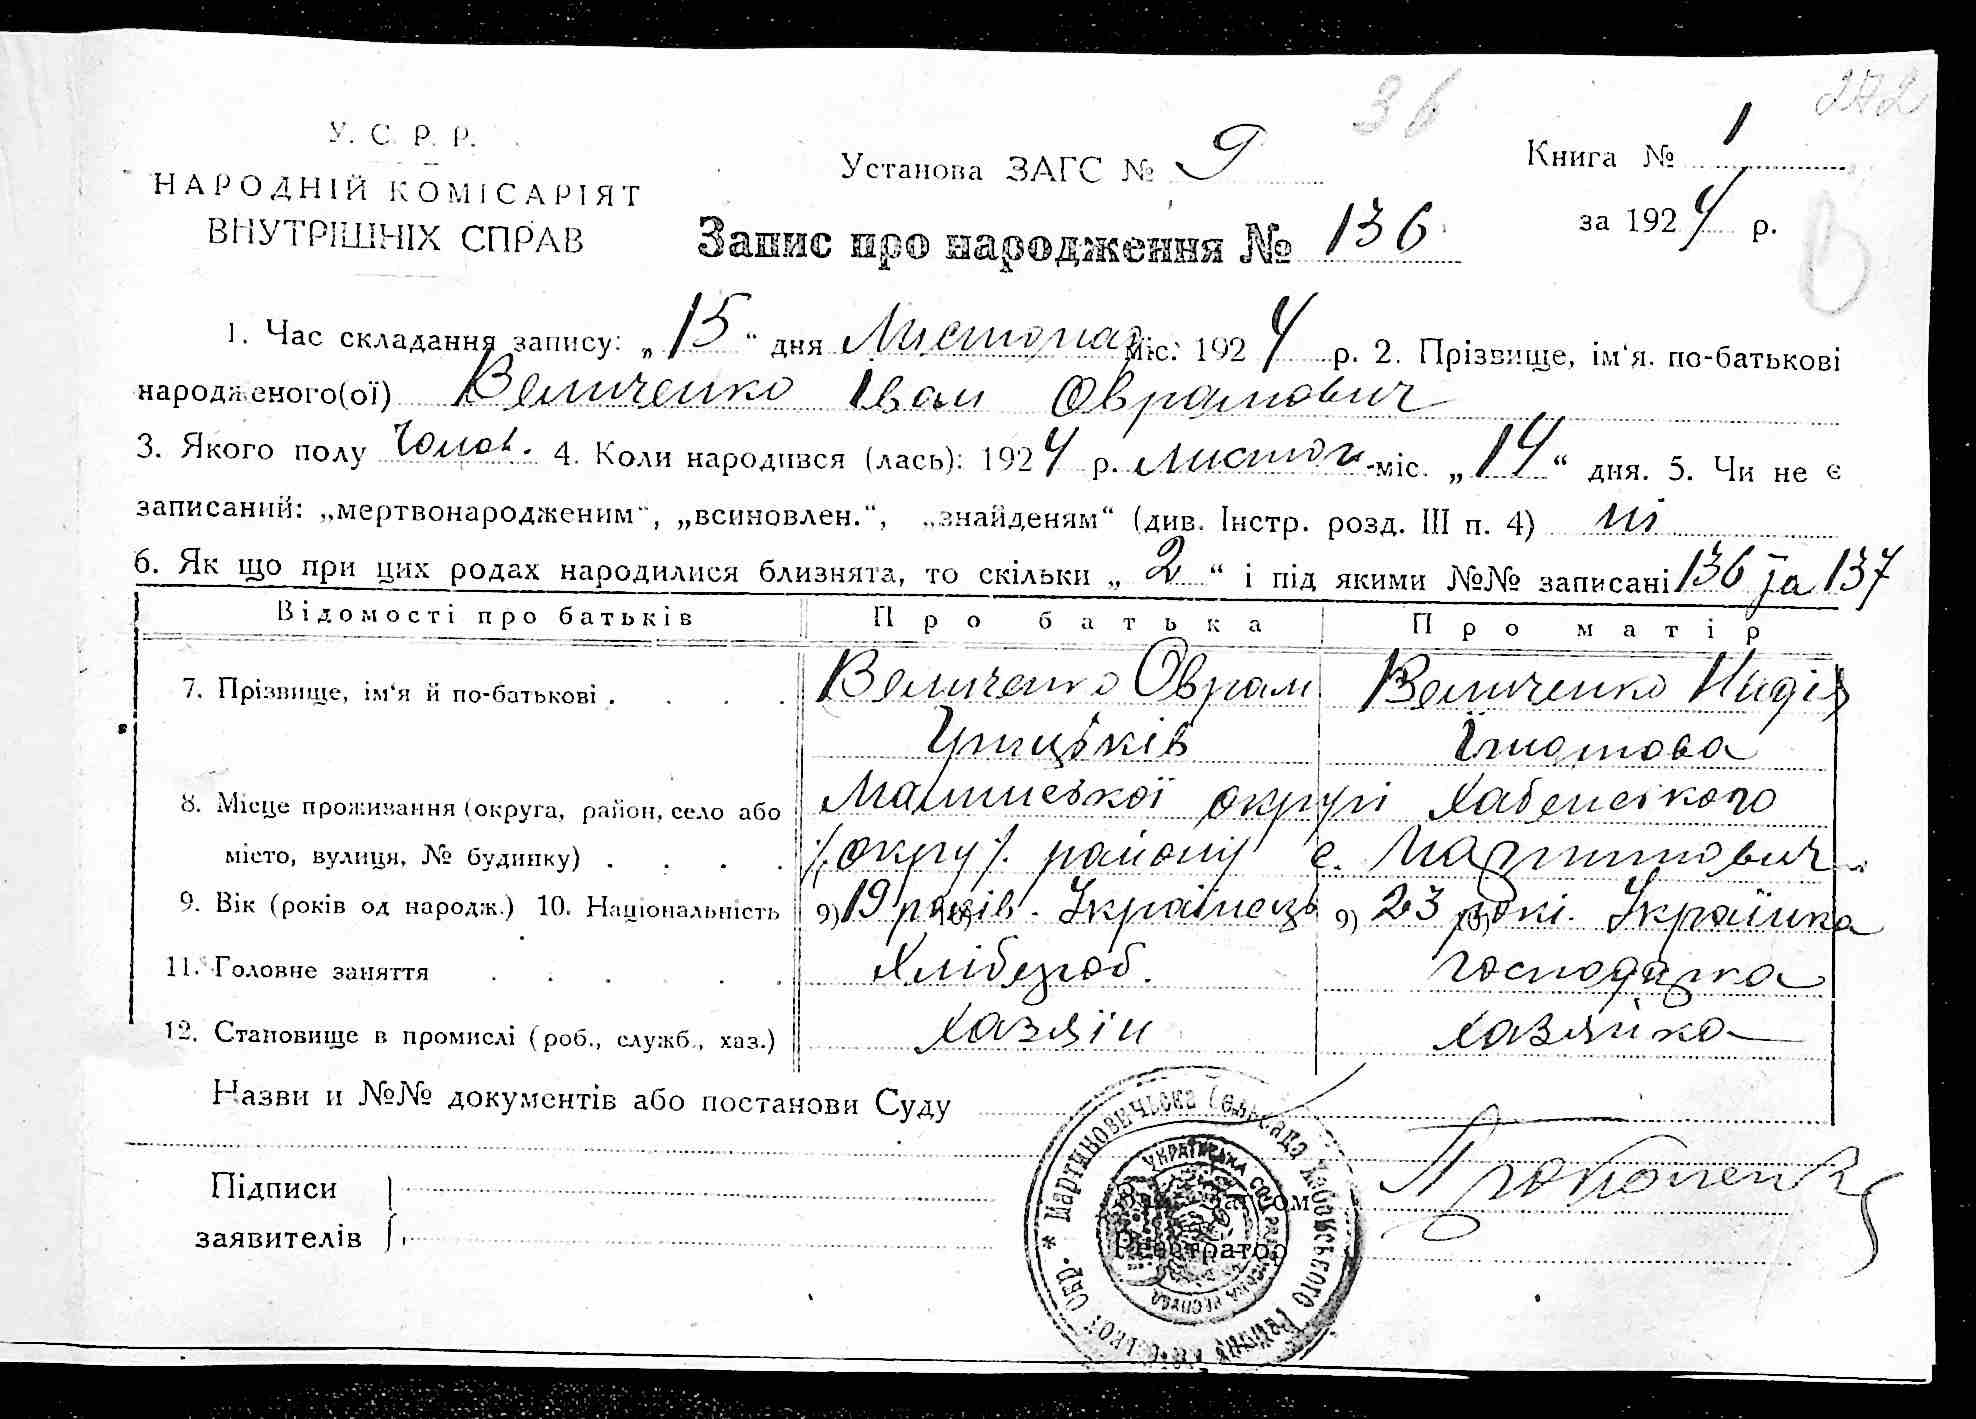 36
272
У. С. Р. Р.
НАРОДНІЙ КОМІСАРІЯТ
ВНУТРІШНІХ СПРАВ
Установа ЗАГС № 9
Книга № 1
за 1924 р.
Запис про народження № 136
1. Час складання запису: „15“ дня Листопад міс. 1924 р. 2. Прізвище, ім‘я. по-батькові
народженого(ої) Величенко Іван Оврамович
3. Якого полу Чолов. 4. Коли народився (лась): 1924 р. листоп. міс. „14“ дня. 5. Чи не є
записаний: „мертвонародженим“, „всиновлен.“, „знайденям“ (див. Інстр. розд. III п. 4) ні
6. Як що при цих родах народилися близнята, то скільки „2“ і під якими №№ записані 136 та 137
Відомості про батьків Про батька Про матір
7. Прізвище, ім‘я й по-батькові . . . . Величенко Оврам Величенко Надія
Грицьків Гнатова
8. Місце проживання (округа, район, село або Малинської округи Хабенського
місто, вулиця, № будинку) . . . . /округ/. району с. Мартинович
9. Вік (років од народж.) 10. Національність 9) 19 років. 10) Українець 9) 23 рокі. 10) Українка
11. Головне заняття . . . . . Хлібороб. господарка
12. Становище в промислі (роб., служб., хаз.) хазяїн хазяйка
Назви и №№ документів або постанови Суду
Підписи
заявителів
Зав. Загсом
Реєстратор
Мартиновичьска Сельсада Хабенського Району
УКРАЇНСЬКА